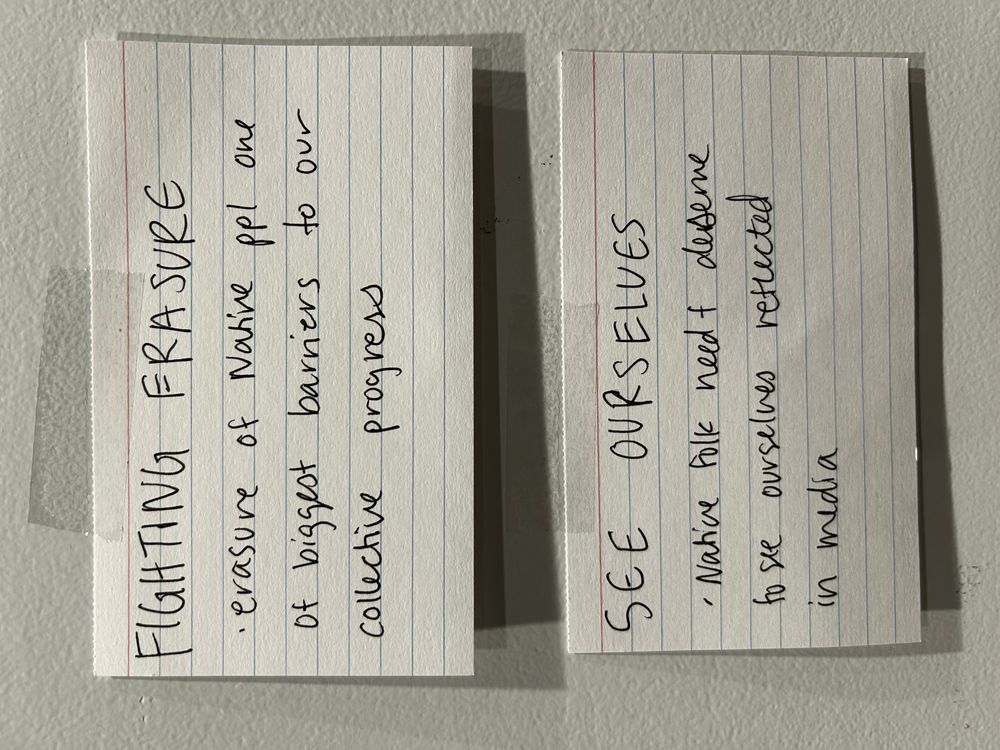 FIGHTING ERASURE
• erasure of Native ppl one
of biggest barriers to our
collective progress
SEE OURSELVES
• Native folk need + deserve
to see ourselves reflected
in media